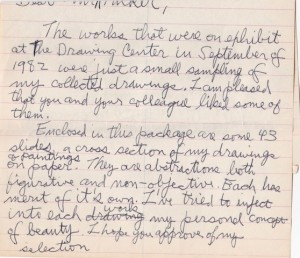 Dear
The works that were on exhibit
at The Drawing Center in September of
1982 were just a small sampling of
my collected drawings. I am pleased
that you and your colleagues liked some of
them.
Enclosed in this package are some 43
slides, a cross section of my drawings
& paintings
on paper. They are abstractions both
figurative and non-objective. Each has
merit of it's own. I've tried to inject
works
into each drawing my personal concept
of beauty. I hope you approve of my
selection